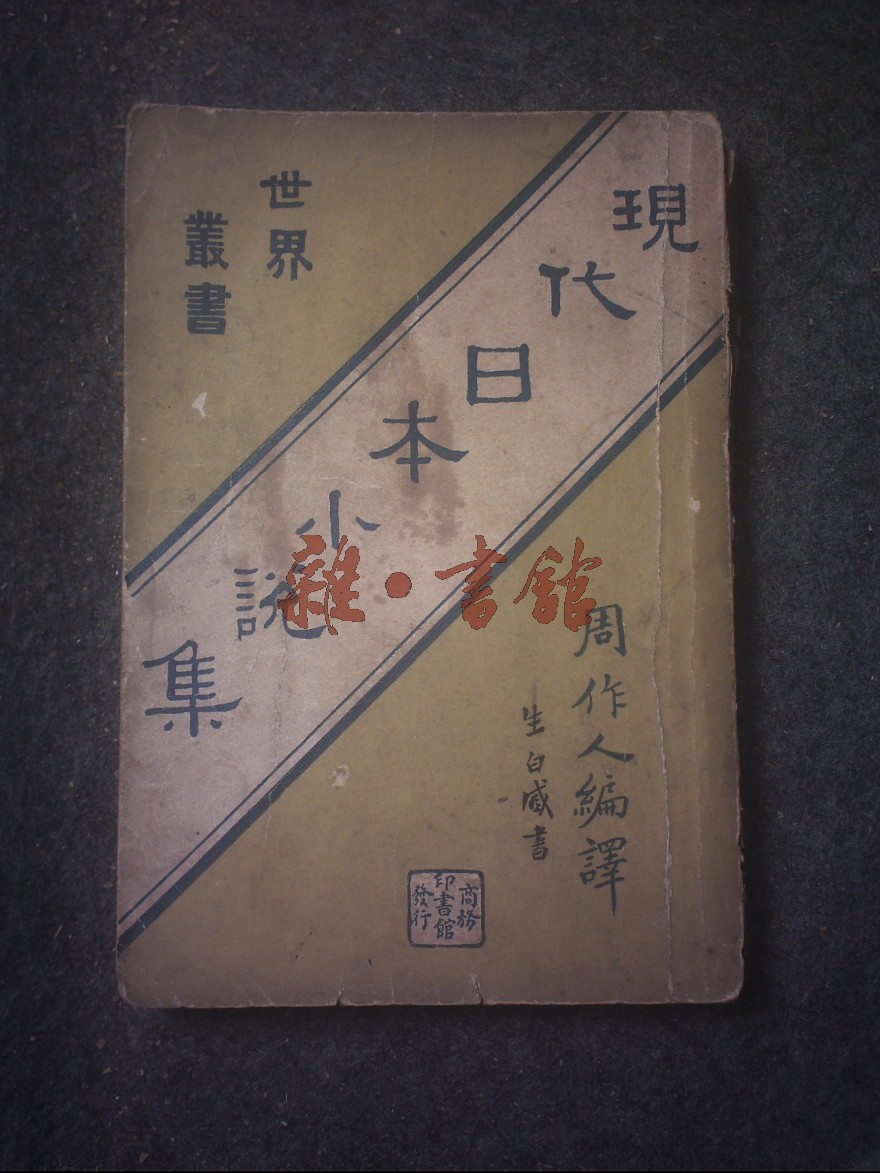 現代日本小說集
世界
叢書
周作人編譯
生白臧書
商務
印書館
發行
雜·書館